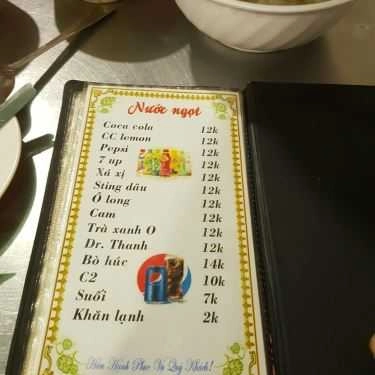 Nước ngọt
Coca cola 12k
CC lemon 12k
Pepsi 12k
7 up 12k
Xá xị 12k
Sting dâu 12k
Ô long 12k
Cam 12k
Trà xanh O 12k
Dr. Thanh 12k
Bò húc 14k
C2 10k
Suối 7k
Khăn lạnh 2k
Hân Hạnh Phục Vụ Quý Khách!